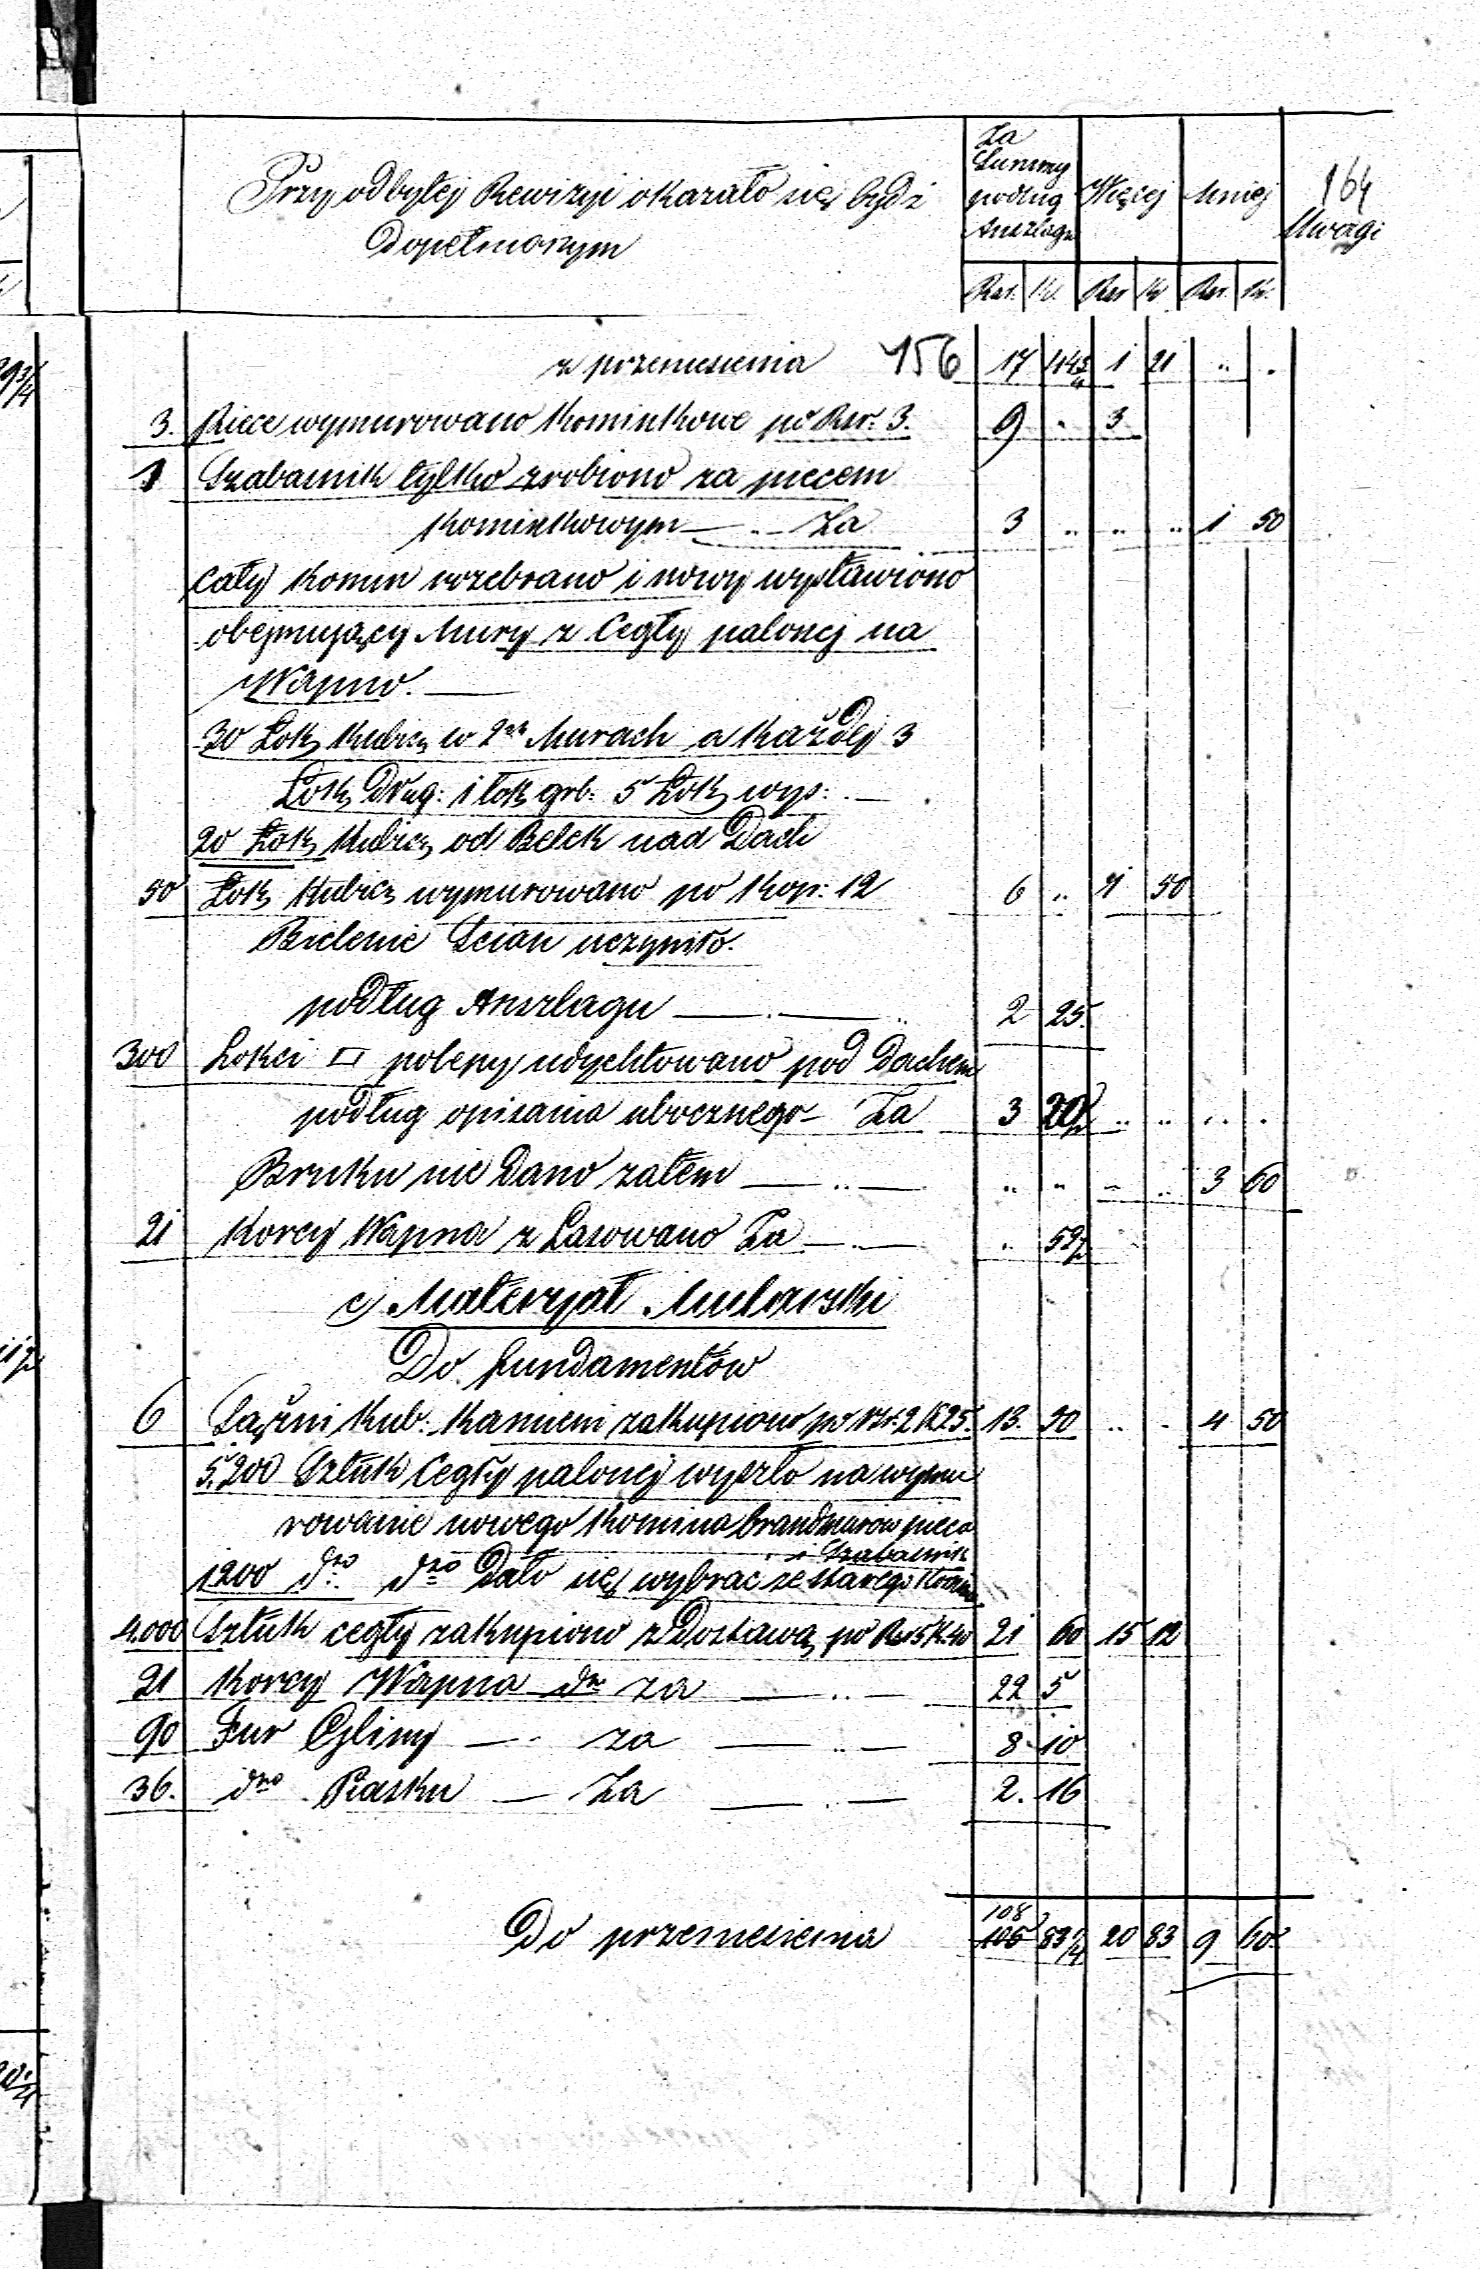 164
Przy odbytej Rewizyi okazało się bydź
Dopełnionym
Za Summy podług Anszlagu
Więcej
Mniej
Uwagi
Rsr. K. Rsr K Rsr. K.
z przeniesienia 156 17 1 21 .. .
3. Piece wymurowano Kominkowe po Rsr. 3. 9 - 3
1 Szabasnik tylko zrobiono za piecem
Kominkowym — .. — Za 3 .. .. .. 1 50
Cały Komin rozebrano i nowy wystawiono
obejmujący Mury z Cegły palonej na
Wapno. —
30 Łok. Kubicz w 2ch Murach a Każdej 3
Łok. Dług: 1 łok grb: 5 Łok wys: . —
20 Łok. Kubicz od Belek nad Dach
50 Łok Kubicz wymurowano po Kop: 12 6 .. 1 50
Bielenie Scian uczyniło.
podług Anszlagu — . — .. 2 25.
300 Łokci □ polepy udychtowano pod Dachem
podług opisania ubocznego — Za 3 .. .. .. .
Bruku nie Dano zatem — .. — .. - - .. 3 60
21 Korcy Wapna z Lasowano Za — . — ..
c) Materyał Mularski
Do fundamentów
6 Sążni Kub. Kamieni zakupiono po Rsr. 2 K 25. 13. 50 .. - 4 50
5.200 Sztuk Cegły palonej wyszło na wymu
rowanie nowego Komina brandmurów pieca
i Szabasnik
1200 dto dto Dało się wybrać ze starego Komina
4.000 Sztuk cegły zakupiono z Dostawą po Rsr 5 K. 40 21 60 15 12
21 Korcy Wapna dto za — .. — 22 5
90 Fur Gliny — .. za — .. — 8 10
36. dto Piasku — Za — . — 2. 16
108
Do przeniesienia 106 20 83 9 60.